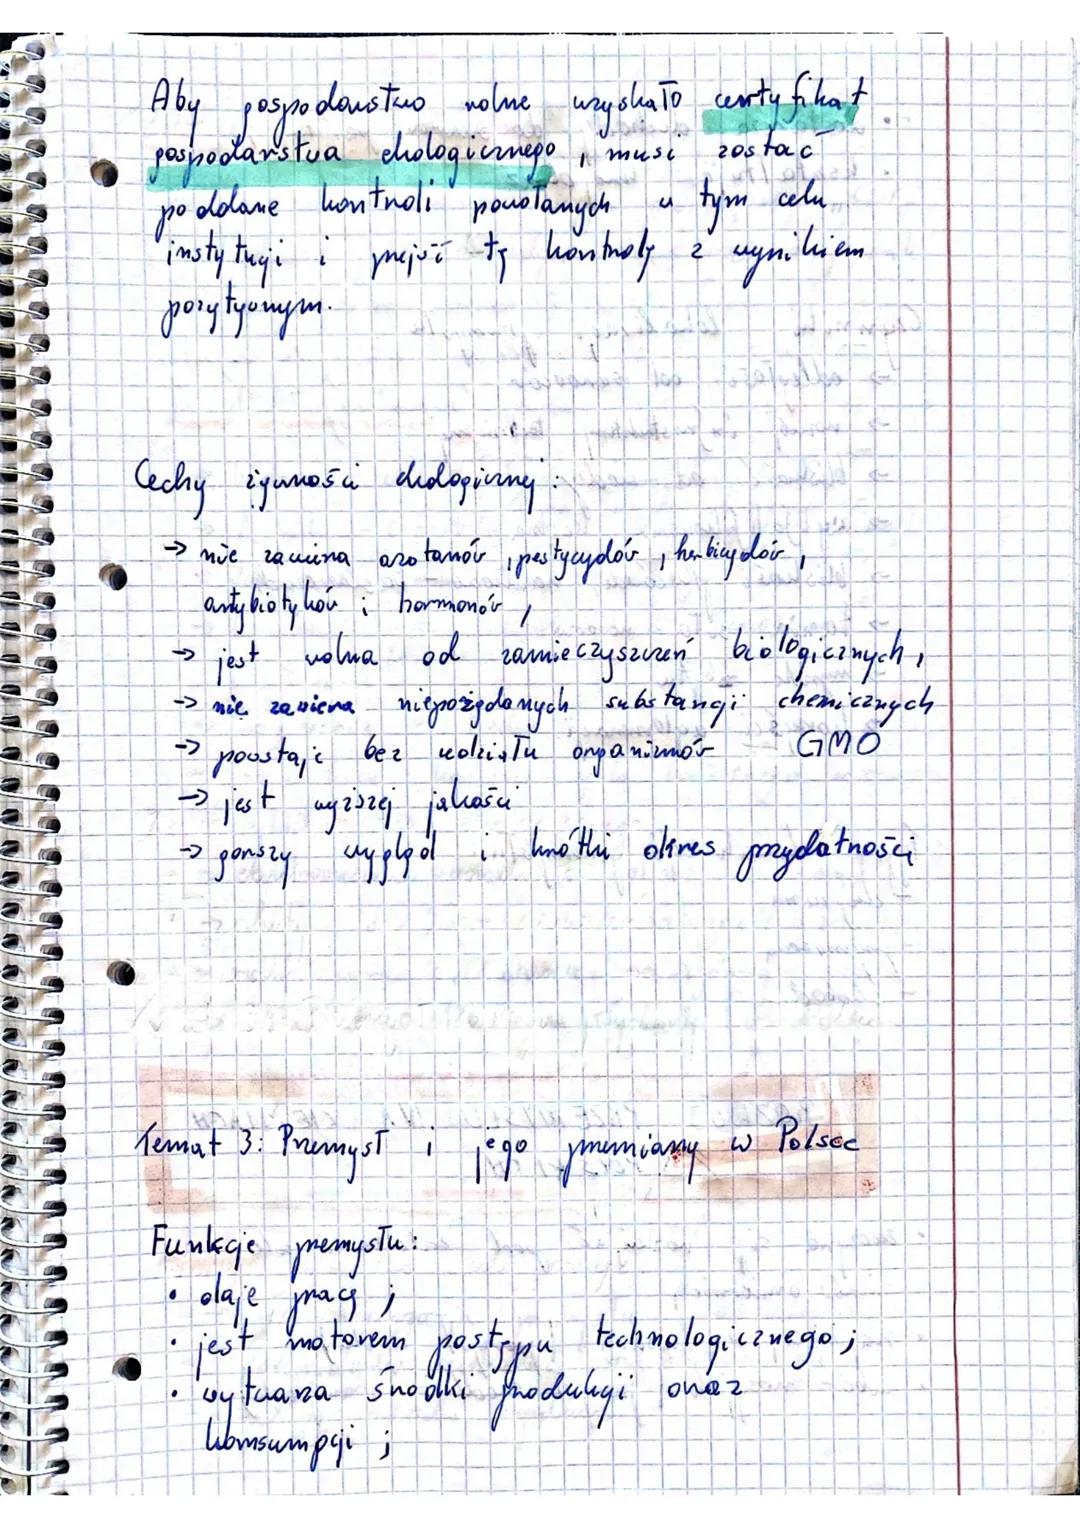 Aby gospodarstwo rolne uzyskało certyfikat
gospodarstwa ekologicznego, musi zostać
poddane kontroli powołanych w tym celu
instytucji i przejść tę kontrolę z wynikiem
pozytywnym.
Cechy żywności ekologicznej:
→ nie zawiera azotanów, pestycydów, herbicydów,
antybiotyków i hormonów,
→ jest wolna od zanieczyszczeń biologicznych,
→ nie zawiera niepożądanych substancji chemicznych
→ powstaje bez udziału organizmów GMO
→ jest wyższej jakości
→ gorszy wygląd i krótki okres przydatności
Temat 3: Przemysł i jego przemiany w Polsce
Funkcje przemysłu:
• daje pracę;
• jest motorem postępu technologicznego;
• wytwarza środki produkcji oraz
konsumpcji;